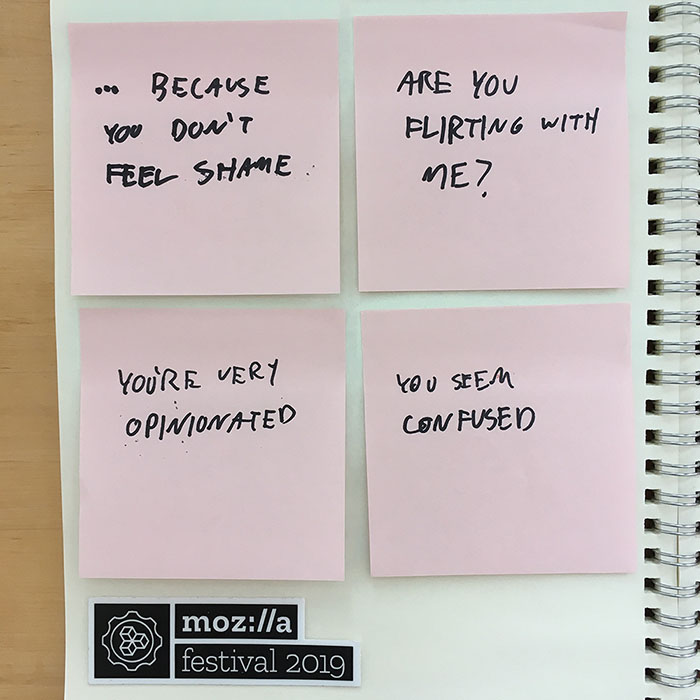 ... BECAUSE
YOU DON'T
FEEL SHAME.
ARE YOU
FLIRTING WITH
ME?
YOU'RE VERY
OPINIONATED
YOU SEEM
CONFUSED
moz://a
festival 2019